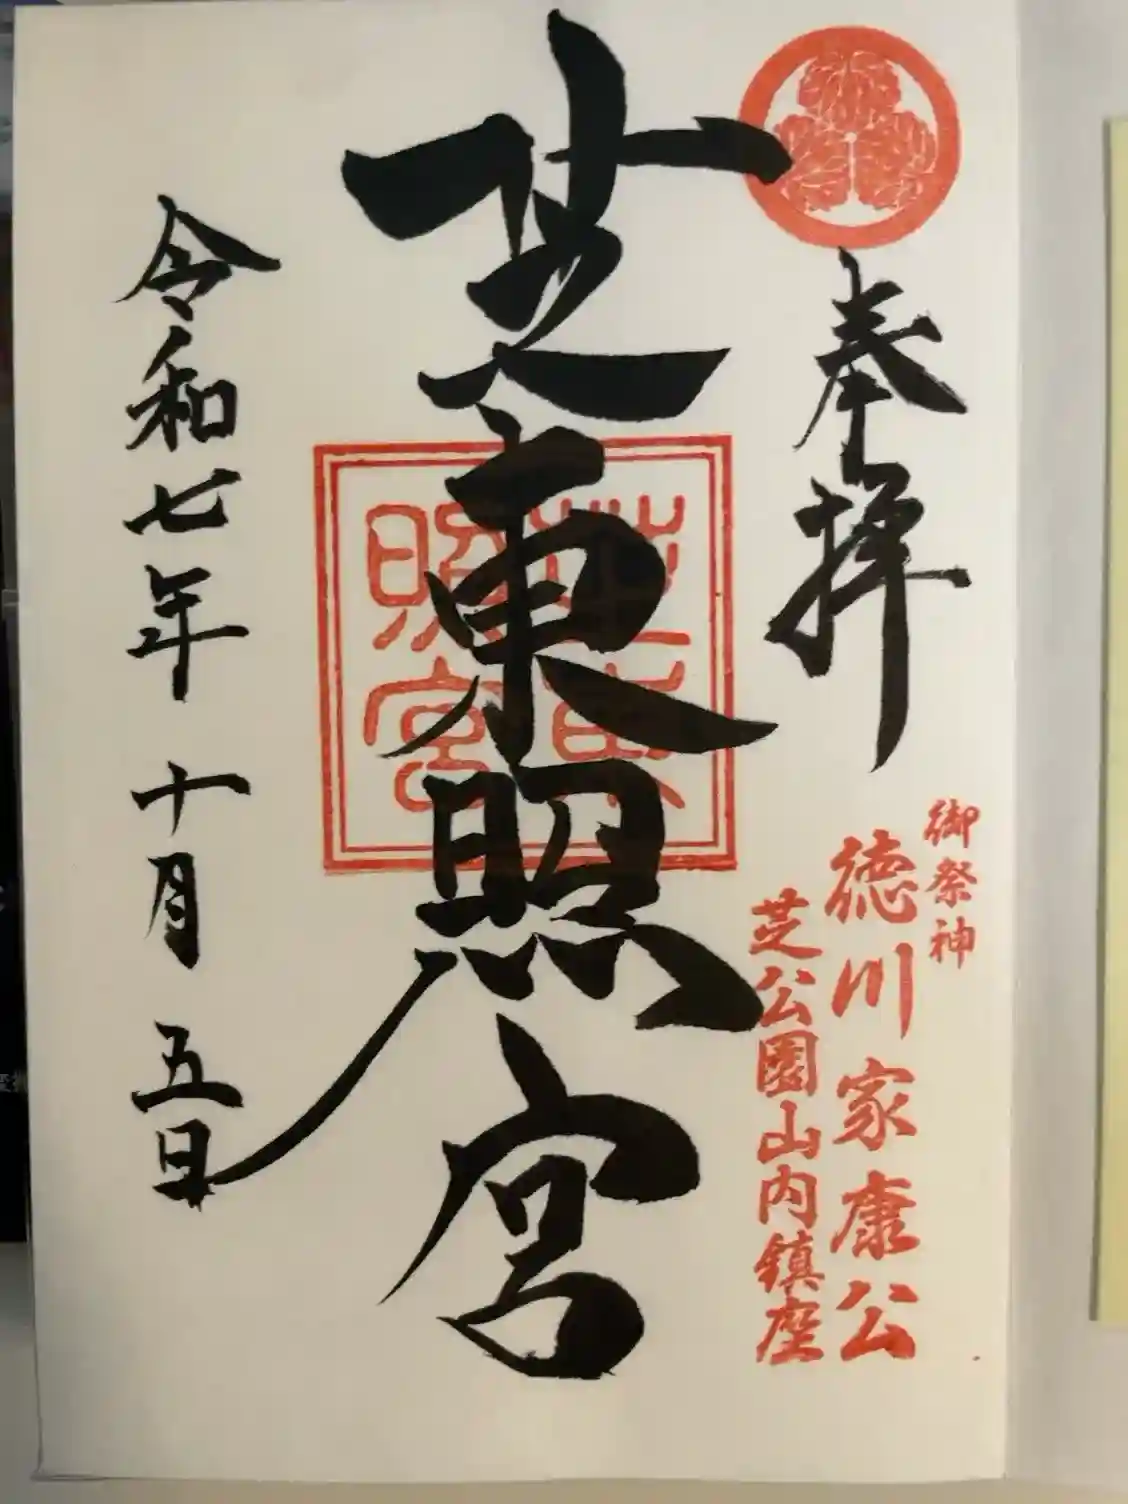 奉拝
御祭神
徳川家康公
芝公園山内鎮座
芝東照宮
芝東
照宮
令和七年 十月 五日